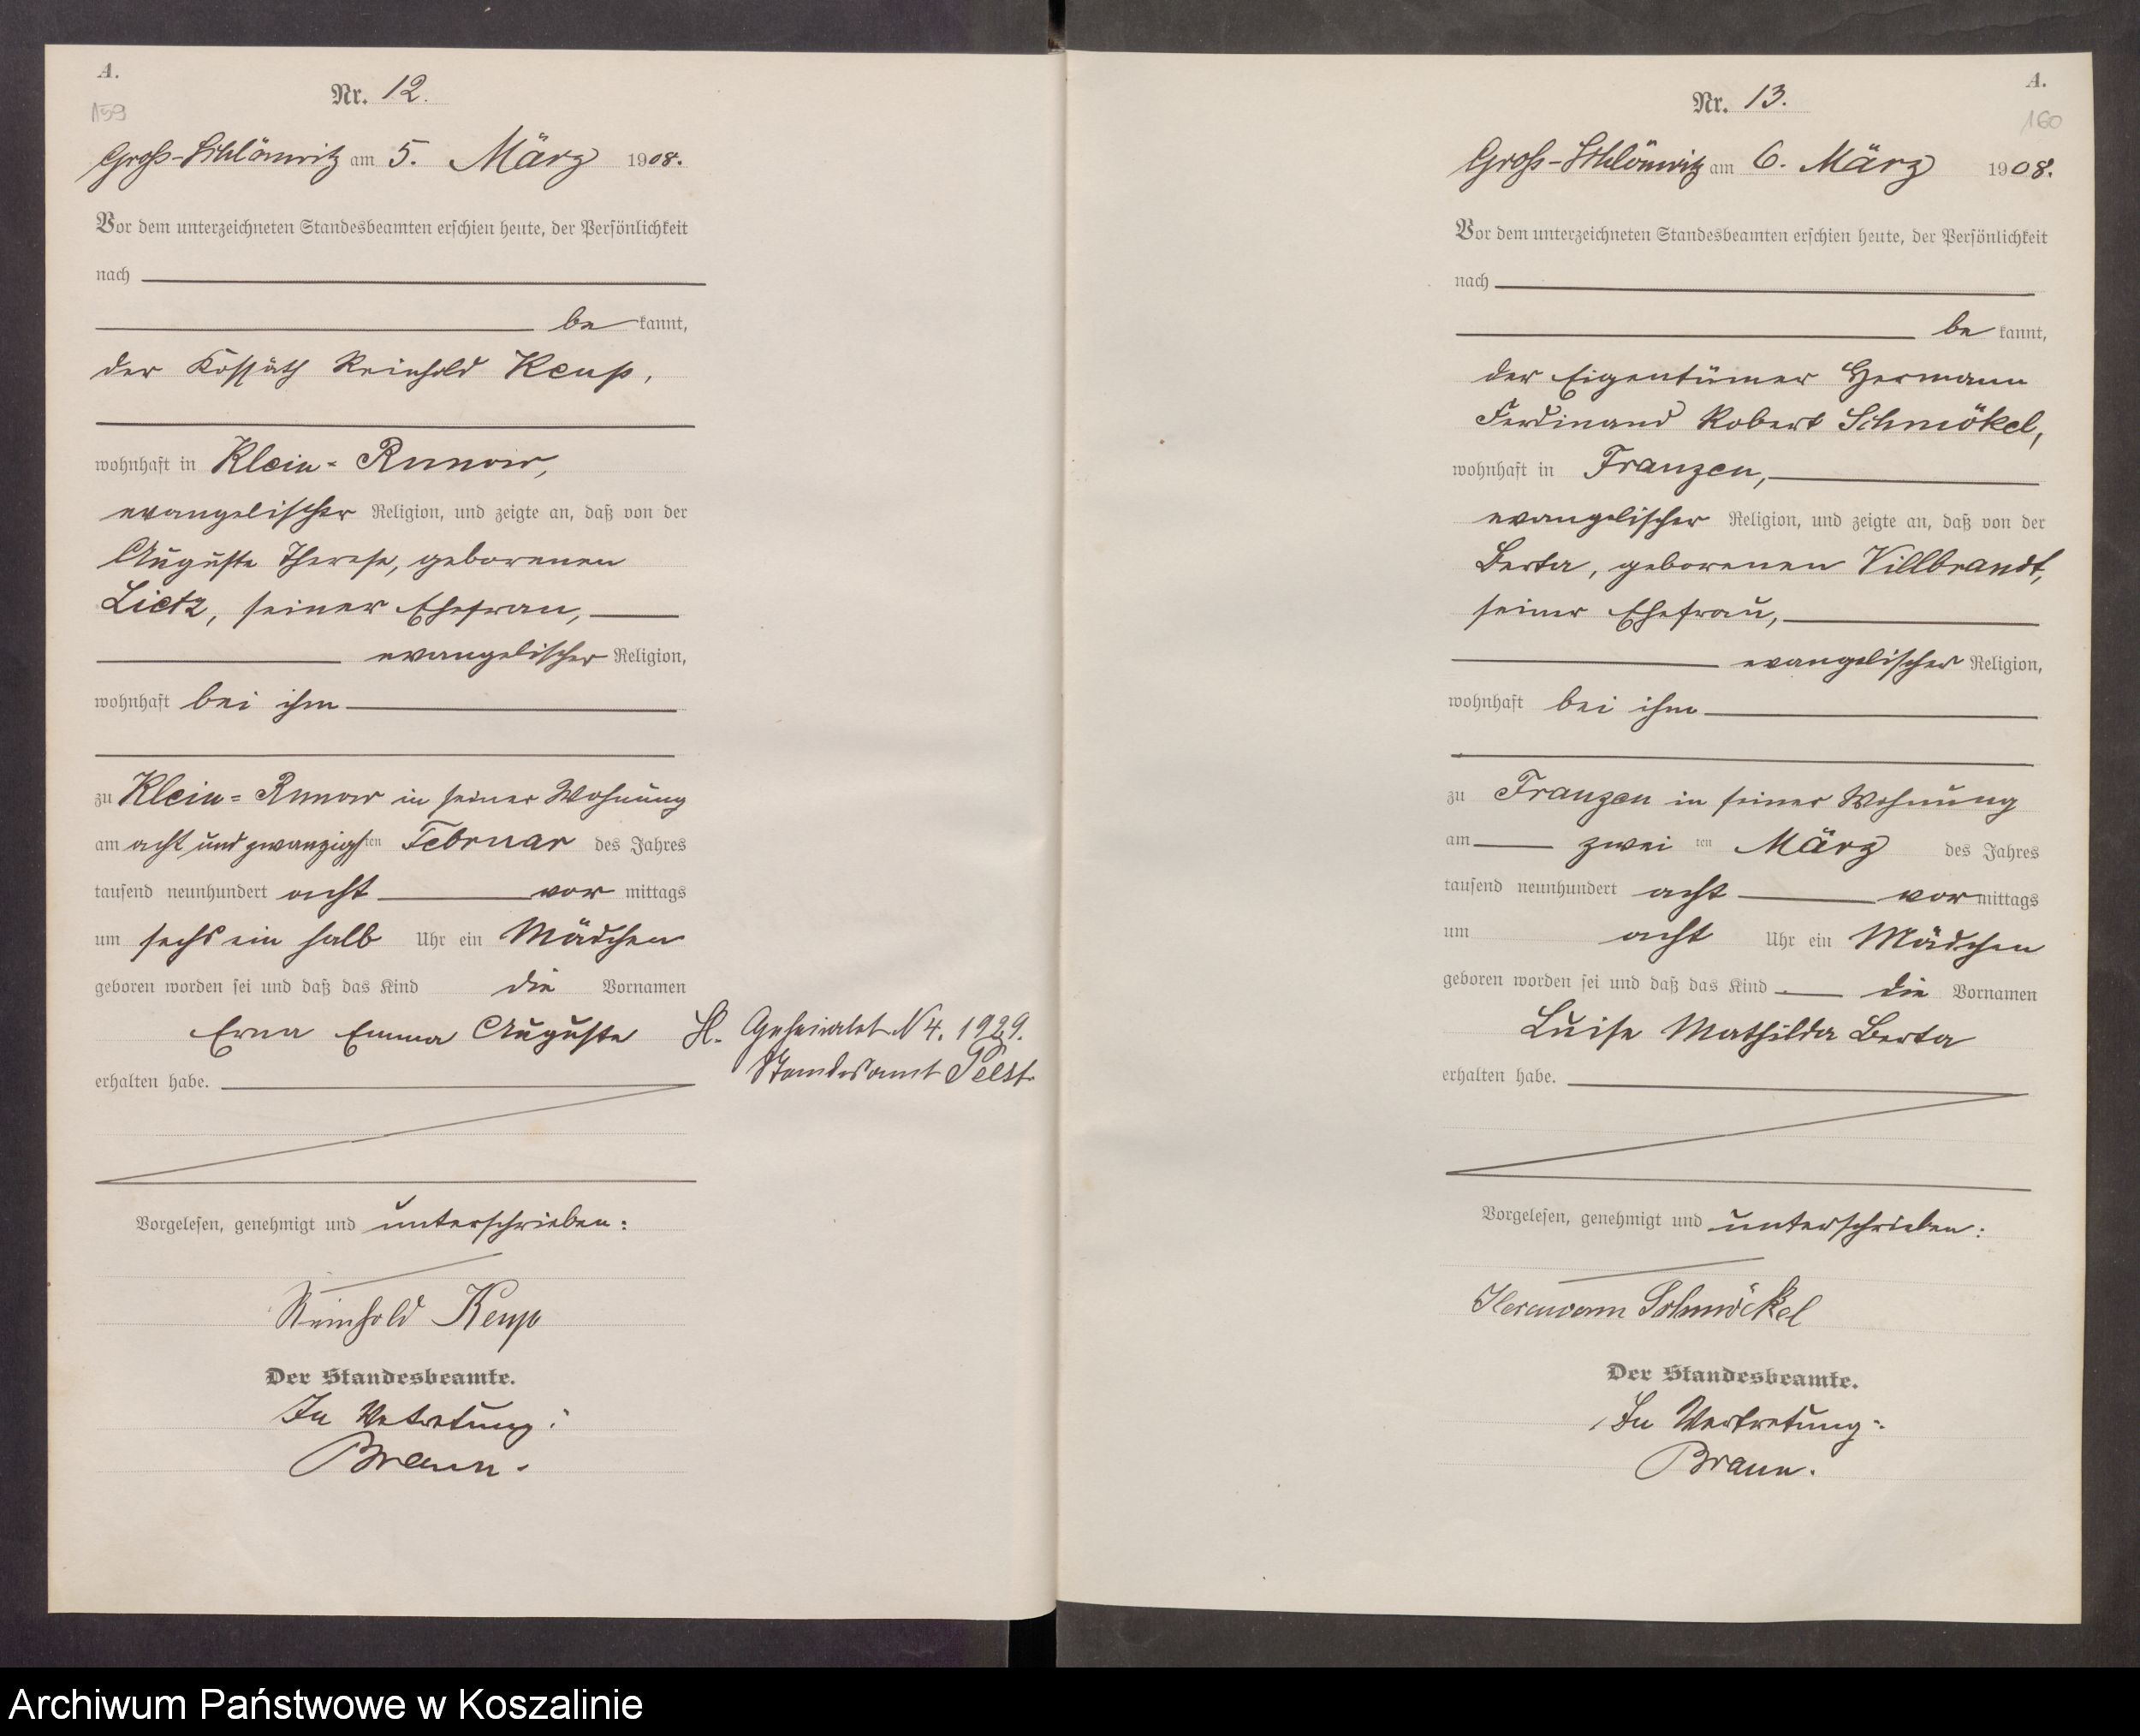 A.
159
Nr. 12.
Groß-Schlönwitz am 5. März 1908.
Vor dem unterzeichneten Standesbeamten erschien heute, der Persönlichkeit
nach
be kannt,
der Kossäth Reinhold Keup,
wohnhaft in Klein-Runow,
evangelischer Religion, und zeigte an, daß von der
Auguste Therese, geborenen
Lietz, seiner Ehefrau,
evangelischer Religion,
wohnhaft bei ihm
zu Klein-Runow in seiner Wohnung
am acht und zwanzigsten Februar des Jahres
tausend neunhundert acht vor mittags
um sechs ein halb Uhr ein Mädchen
geboren worden sei und daß das Kind die Vornamen
Erna Emma Auguste
erhalten habe.
H. Geheiratet N 4. 1929.
Standesamt Peest
Vorgelesen, genehmigt und unterschrieben:
Reinhold Keup
Der Standesbeamte.
In Vertretung:
Braun.
A.
160
Nr. 13.
Groß-Schlönwitz am 6. März 1908.
Vor dem unterzeichneten Standesbeamten erschien heute, der Persönlichkeit
nach
be kannt,
der Eigentümer Hermann
Ferdinand Robert Schmökel,
wohnhaft in Franzen,
evangelischer Religion, und zeigte an, daß von der
Berta, geborenen Villbrandt,
seiner Ehefrau,
evangelischer Religion,
wohnhaft bei ihm
zu Franzen in seiner Wohnung
am zwei ten März des Jahres
tausend neunhundert acht vor mittags
um acht Uhr ein Mädchen
geboren worden sei und daß das Kind die Vornamen
Luise Mathilde Berta
erhalten habe.
Vorgelesen, genehmigt und unterschrieben:
Hermann Schmöckel
Der Standesbeamte.
In Vertretung:
Braun.
Archiwum Państwowe w Koszalinie